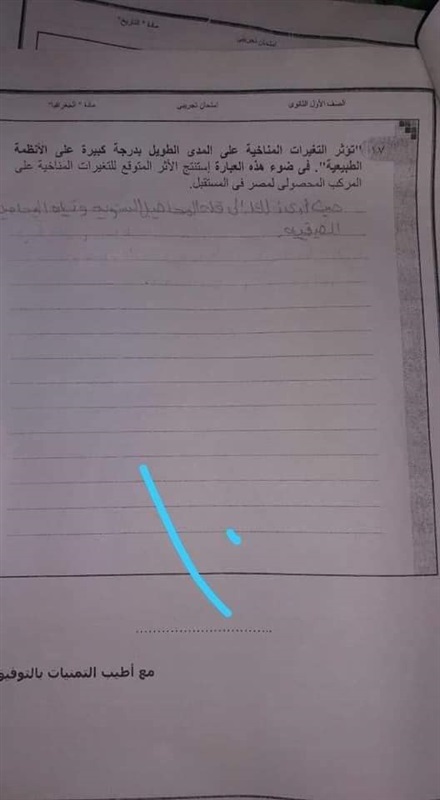 امتحان تجريبى
مادة " التاريخ"
الصف الأول الثانوى امتحان تجريبى مادة " الجغرافيا"
٤٧ "تؤثر التغيرات المناخية على المدى الطويل بدرجة كبيرة على الأنظمة
الطبيعية". فى ضوء هذه العبارة إستنتج الأثر المتوقع للتغيرات المناخية على
المركب المحصولى لمصر فى المستقبل.
المحاصيل الشتوية
الصيفيه
١٠
مع أطيب التمنيات بالتوفيق